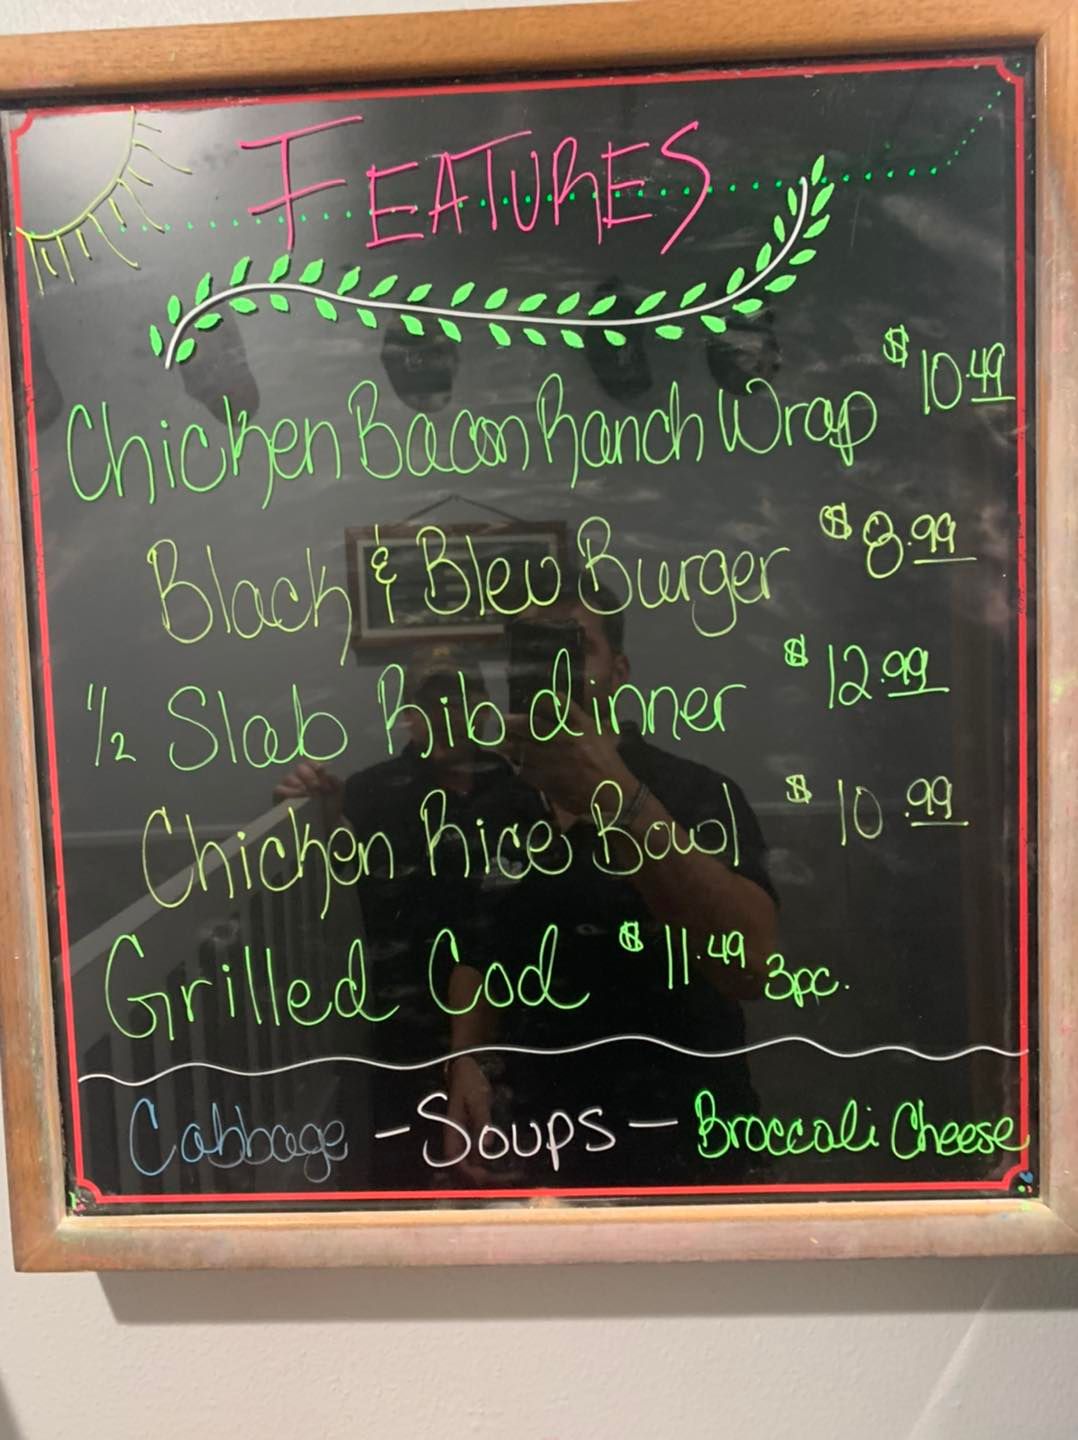 FEATURES
Chicken Bacon Ranch Wrap $10.49
Black & Bleu Burger $8.99
1/2 Slab Rib dinner $12.99
Chicken Rice Bowl $10.99
Grilled Cod $11.49 3pc.
Cabbage - Soups - Broccoli Cheese